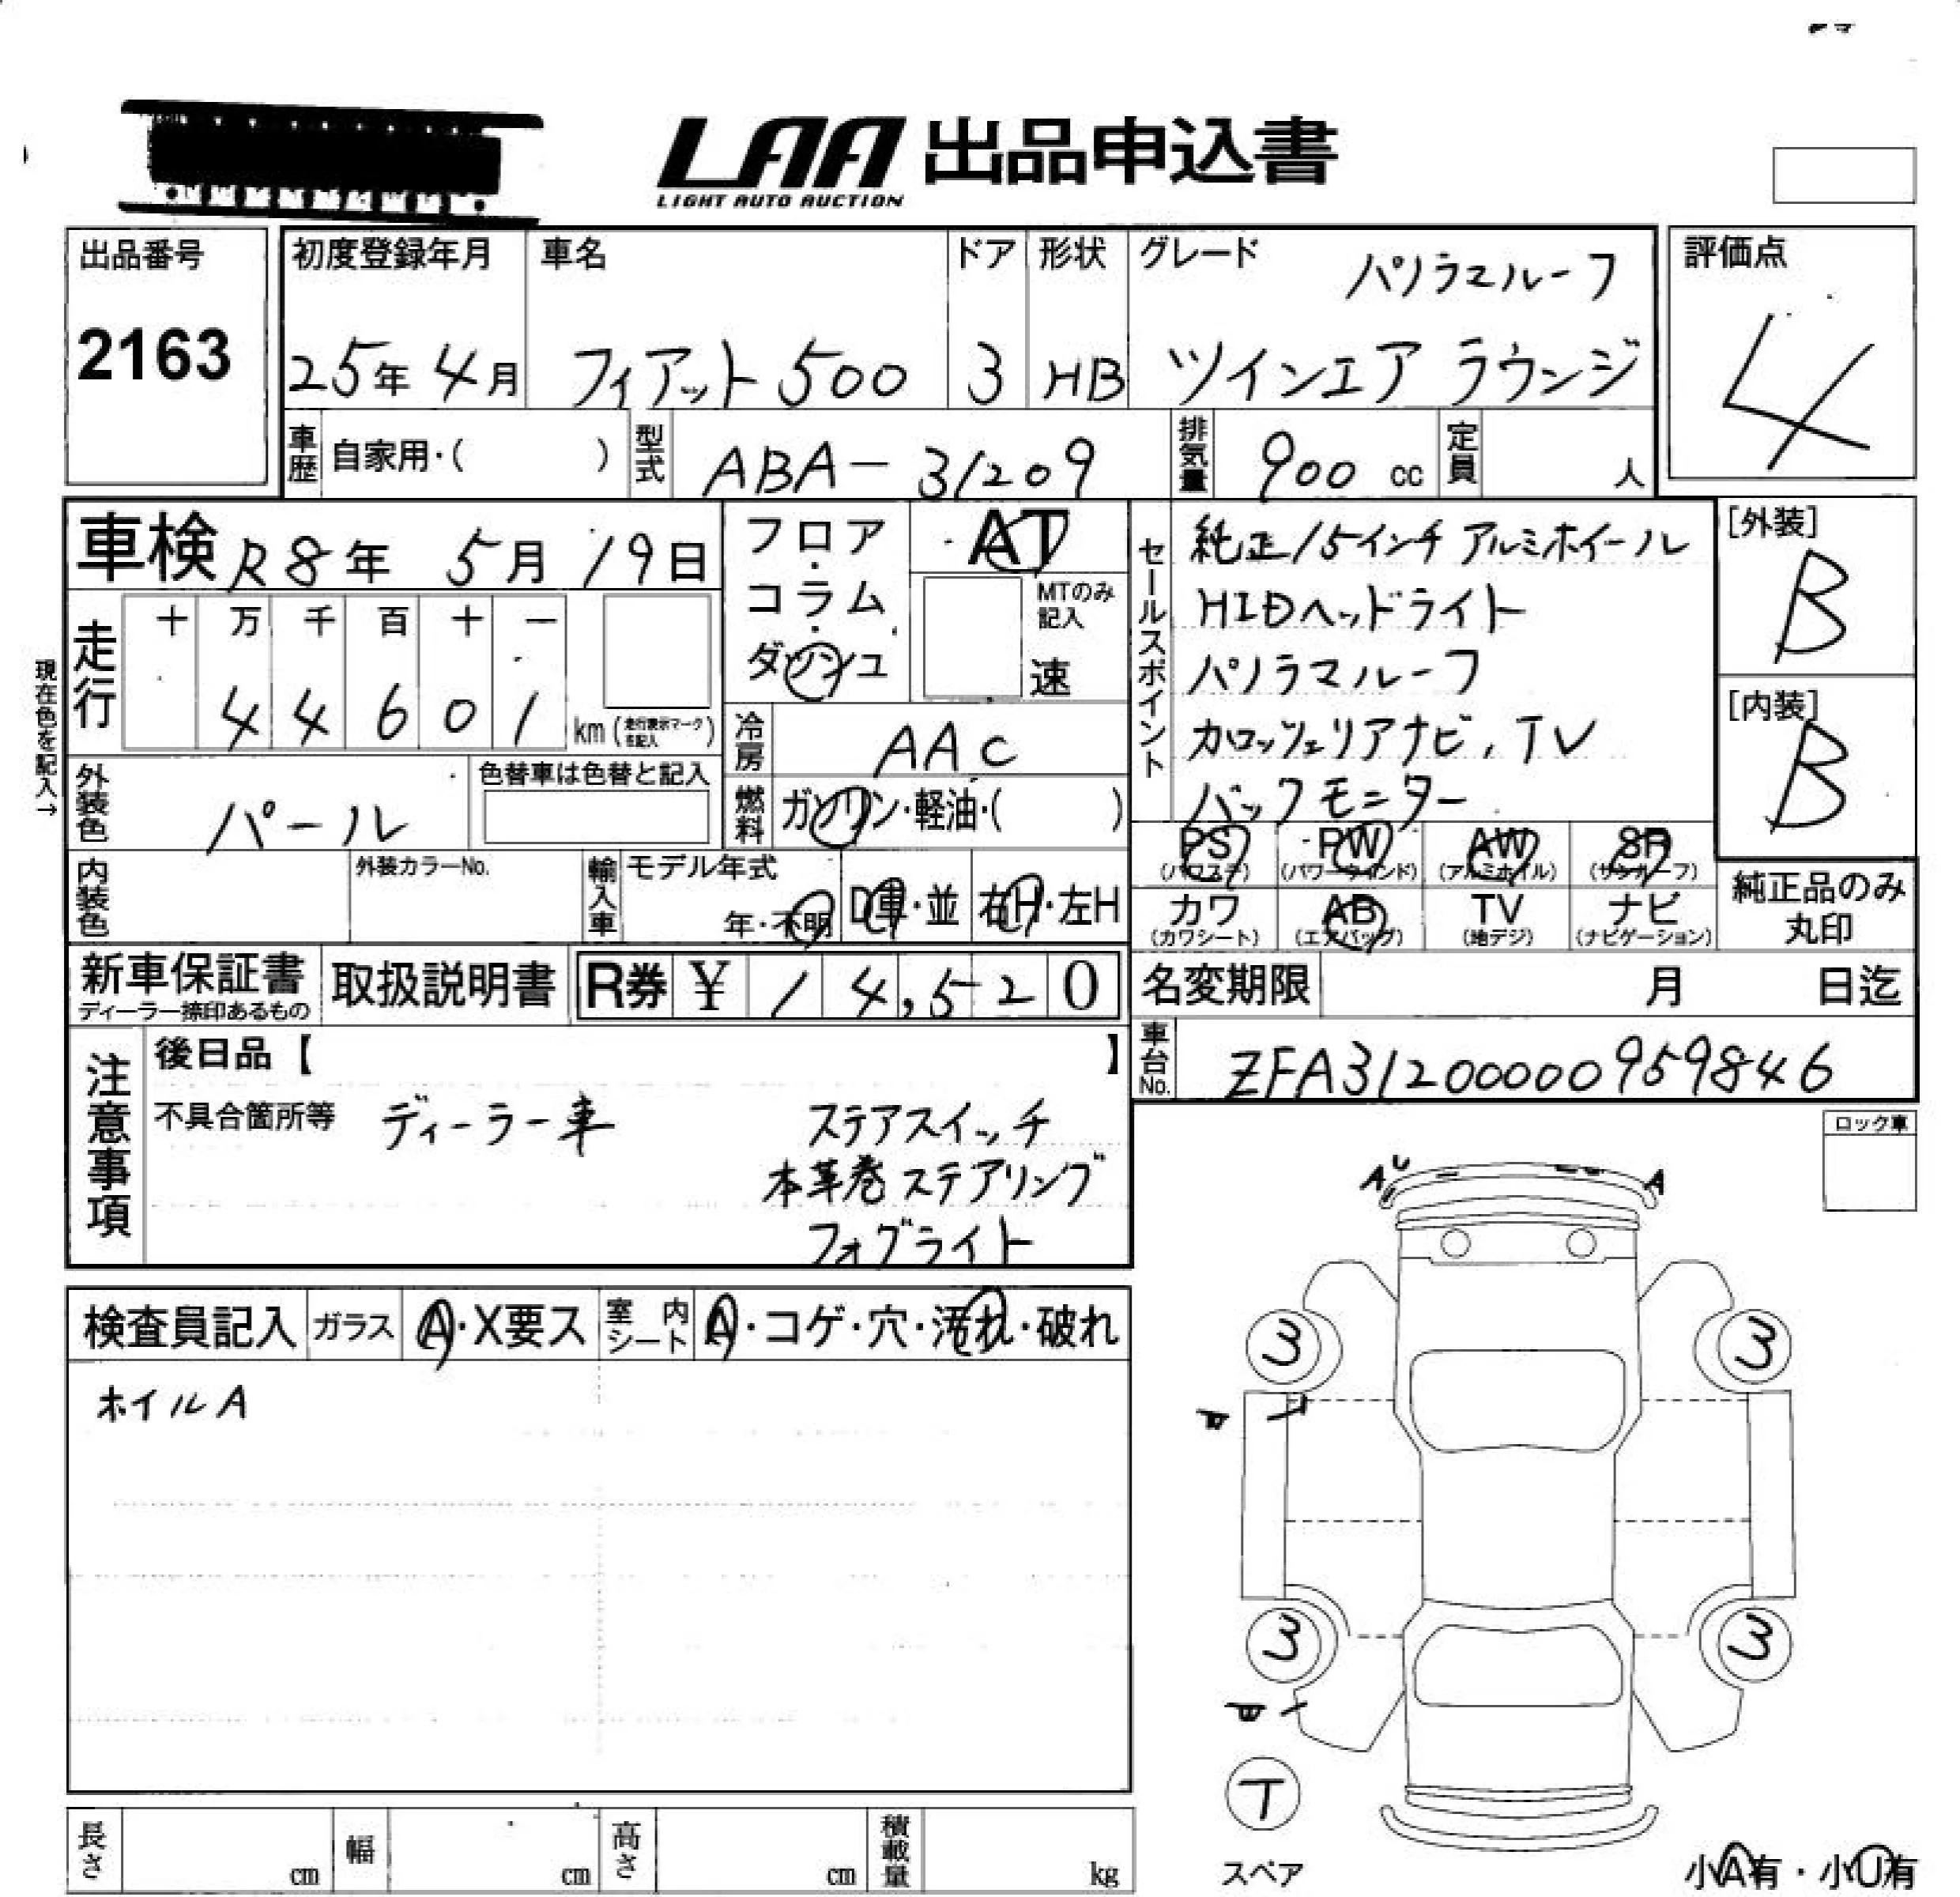 LAA 出品申込書
LIGHT AUTO AUCTION
出品番号
2163
初度登録年月
25年 4月
車名
フィアット 500
ドア
3
形状
HB
グレード
パノラマルーフ
ツインエア ラウンジ
評価点
4
車歴
自家用・( )
型式
ABA-31209
排気量
900 cc
定員
人
車検 R8年 5月 19日
フロア・コラム・ダッシュ
AT
MTのみ記入
速
現在色を記入→
走行
十 万 千 百 十 一
4 4 6 0 1 km (走行表示マーク右記入)
冷房
AAC
外装色
パール
色替車は色替と記入
燃料
ガソリン・軽油・( )
セールスポイント
純正15インチ アルミホイール
HIDヘッドライト
パノラマルーフ
カロッツェリアナビ、TV
バックモニター
[外装]
B
[内装]
B
内装色
外装カラーNo.
輸入車
モデル年式
年・不明
D車・並
右H・左H
PS (パワステ)
PW (パワーウィンド)
AW (アルミホイル)
SR (サンルーフ)
カワ (カワシート)
AB (エアバッグ)
TV (地デジ)
ナビ (ナビゲーション)
純正品のみ丸印
新車保証書
ディーラー捺印あるもの
取扱説明書
R券 ¥ 14,520
名変期限 月 日迄
車台No.
ZFA31200000959846
注意事項
後日品【 】
不具合箇所等 ディーラー車
ステアスイッチ
本革巻ステアリング
フォグライト
ロック車
検査員記入
ガラス
A・X要ス
室内シート
A・コゲ・穴・汚れ・破れ
ホイルA
A
A
3
3
3
3
T
スペア
長さ
cm
幅
cm
高さ
cm
積載量
kg
小A有・小U有